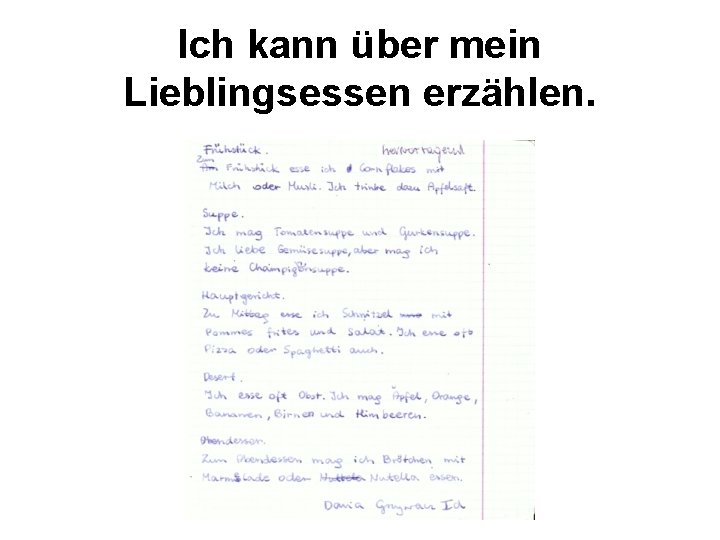 Ich kann über mein
Lieblingsessen erzählen.
Frühstück. hervorragend
Zum Frühstück esse ich Cornflakes mit
Milch oder Musli. Ich trinke dazu Apfelsaft.
Suppe.
Ich mag Tomatensuppe und Gurkensuppe.
Ich liebe Gemüsesuppe, aber mag ich
keine Champigensuppe.
Hauptgericht.
Zu Mittag esse ich Schnitzel mit
Pommes frites und Salat. Ich esse oft
Pizza oder Spaghetti auch.
Desert.
Ich esse oft Obst. Ich mag Äpfel, Orange,
Bananen, Birnen und Himbeeren.
Abendessen.
Zum Abendessen mag ich Brötchen mit
Marmelade oder Nutella essen.
Daria Id